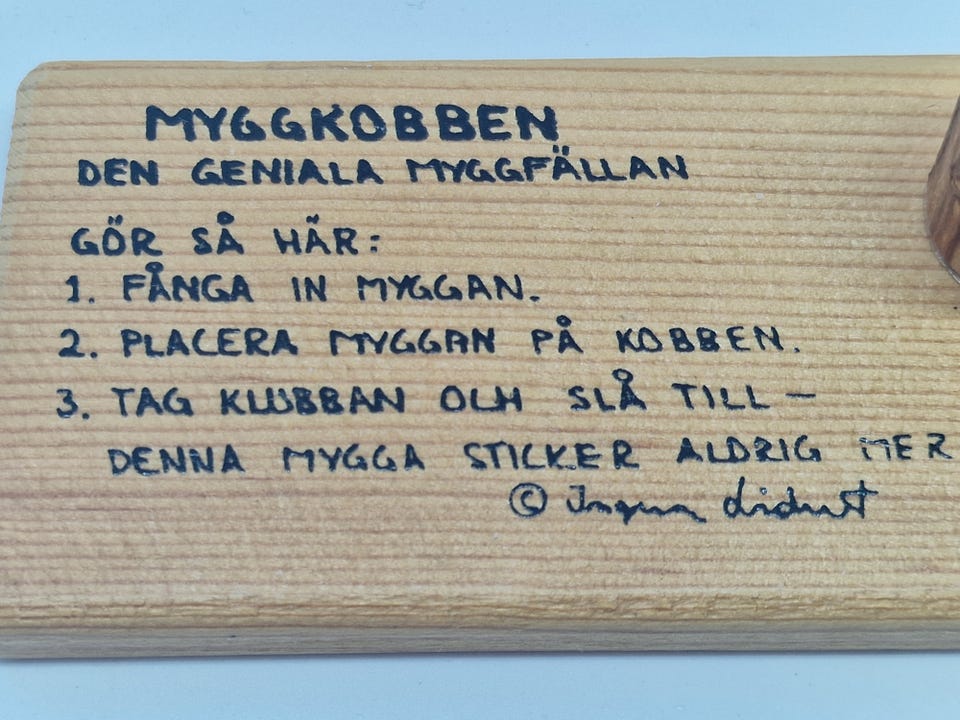 MYGGKOBBEN
DEN GENIALA MYGGFÄLLAN
GÖR SÅ HÄR:
1. FÅNGA IN MYGGAN.
2. PLACERA MYGGAN PÅ KOBBEN.
3. TAG KLUBBAN OCH SLÅ TILL –
DENNA MYGGA STICKER ALDRIG MER
©